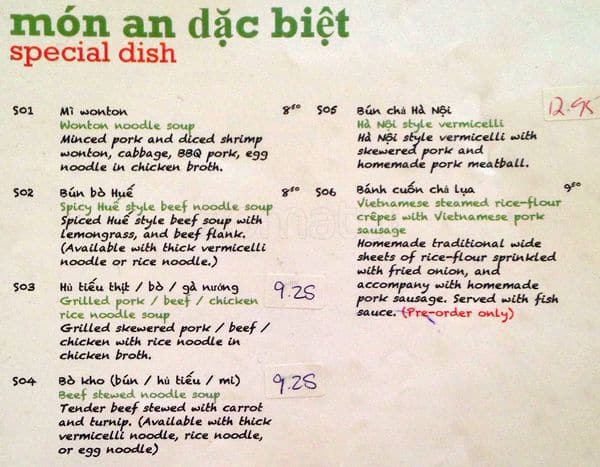 món an dặc biệt
special dish
S01 Mì wonton 8⁵⁰
Wonton noodle soup
Minced pork and diced shrimp
wonton, cabbage, BBQ pork, egg
noodle in chicken broth.
S02 Bún bò Huế 8⁵⁰
Spicy Huế style beef noodle soup
Spiced Huế style beef soup with
lemongrass, and beef flank.
(Available with thick vermicelli
noodle or rice noodle.)
S03 Hủ tiếu thịt / bò / gà nướng 9.25
Grilled pork / beef / chicken
rice noodle soup
Grilled skewered pork / beef /
chicken with rice noodle in
chicken broth.
S04 Bò kho (bún / hủ tiếu / mì) 9.25
Beef stewed noodle soup
Tender beef stewed with carrot
and turnip. (Available with thick
vermicelli noodle, rice noodle,
or egg noodle)
S05 Bún chả Hà Nội 12.95
Hà Nội style vermicelli
Hà Nội style vermicelli with
skewered pork and
homemade pork meatball.
S06 Bánh cuốn chả lụa 9⁵⁰
Vietnamese steamed rice-flour
crêpes with Vietnamese pork
sausage
Homemade traditional wide
sheets of rice-flour sprinkled
with fried onion, and
accompany with homemade
pork sausage. Served with fish
sauce. (Pre-order only)